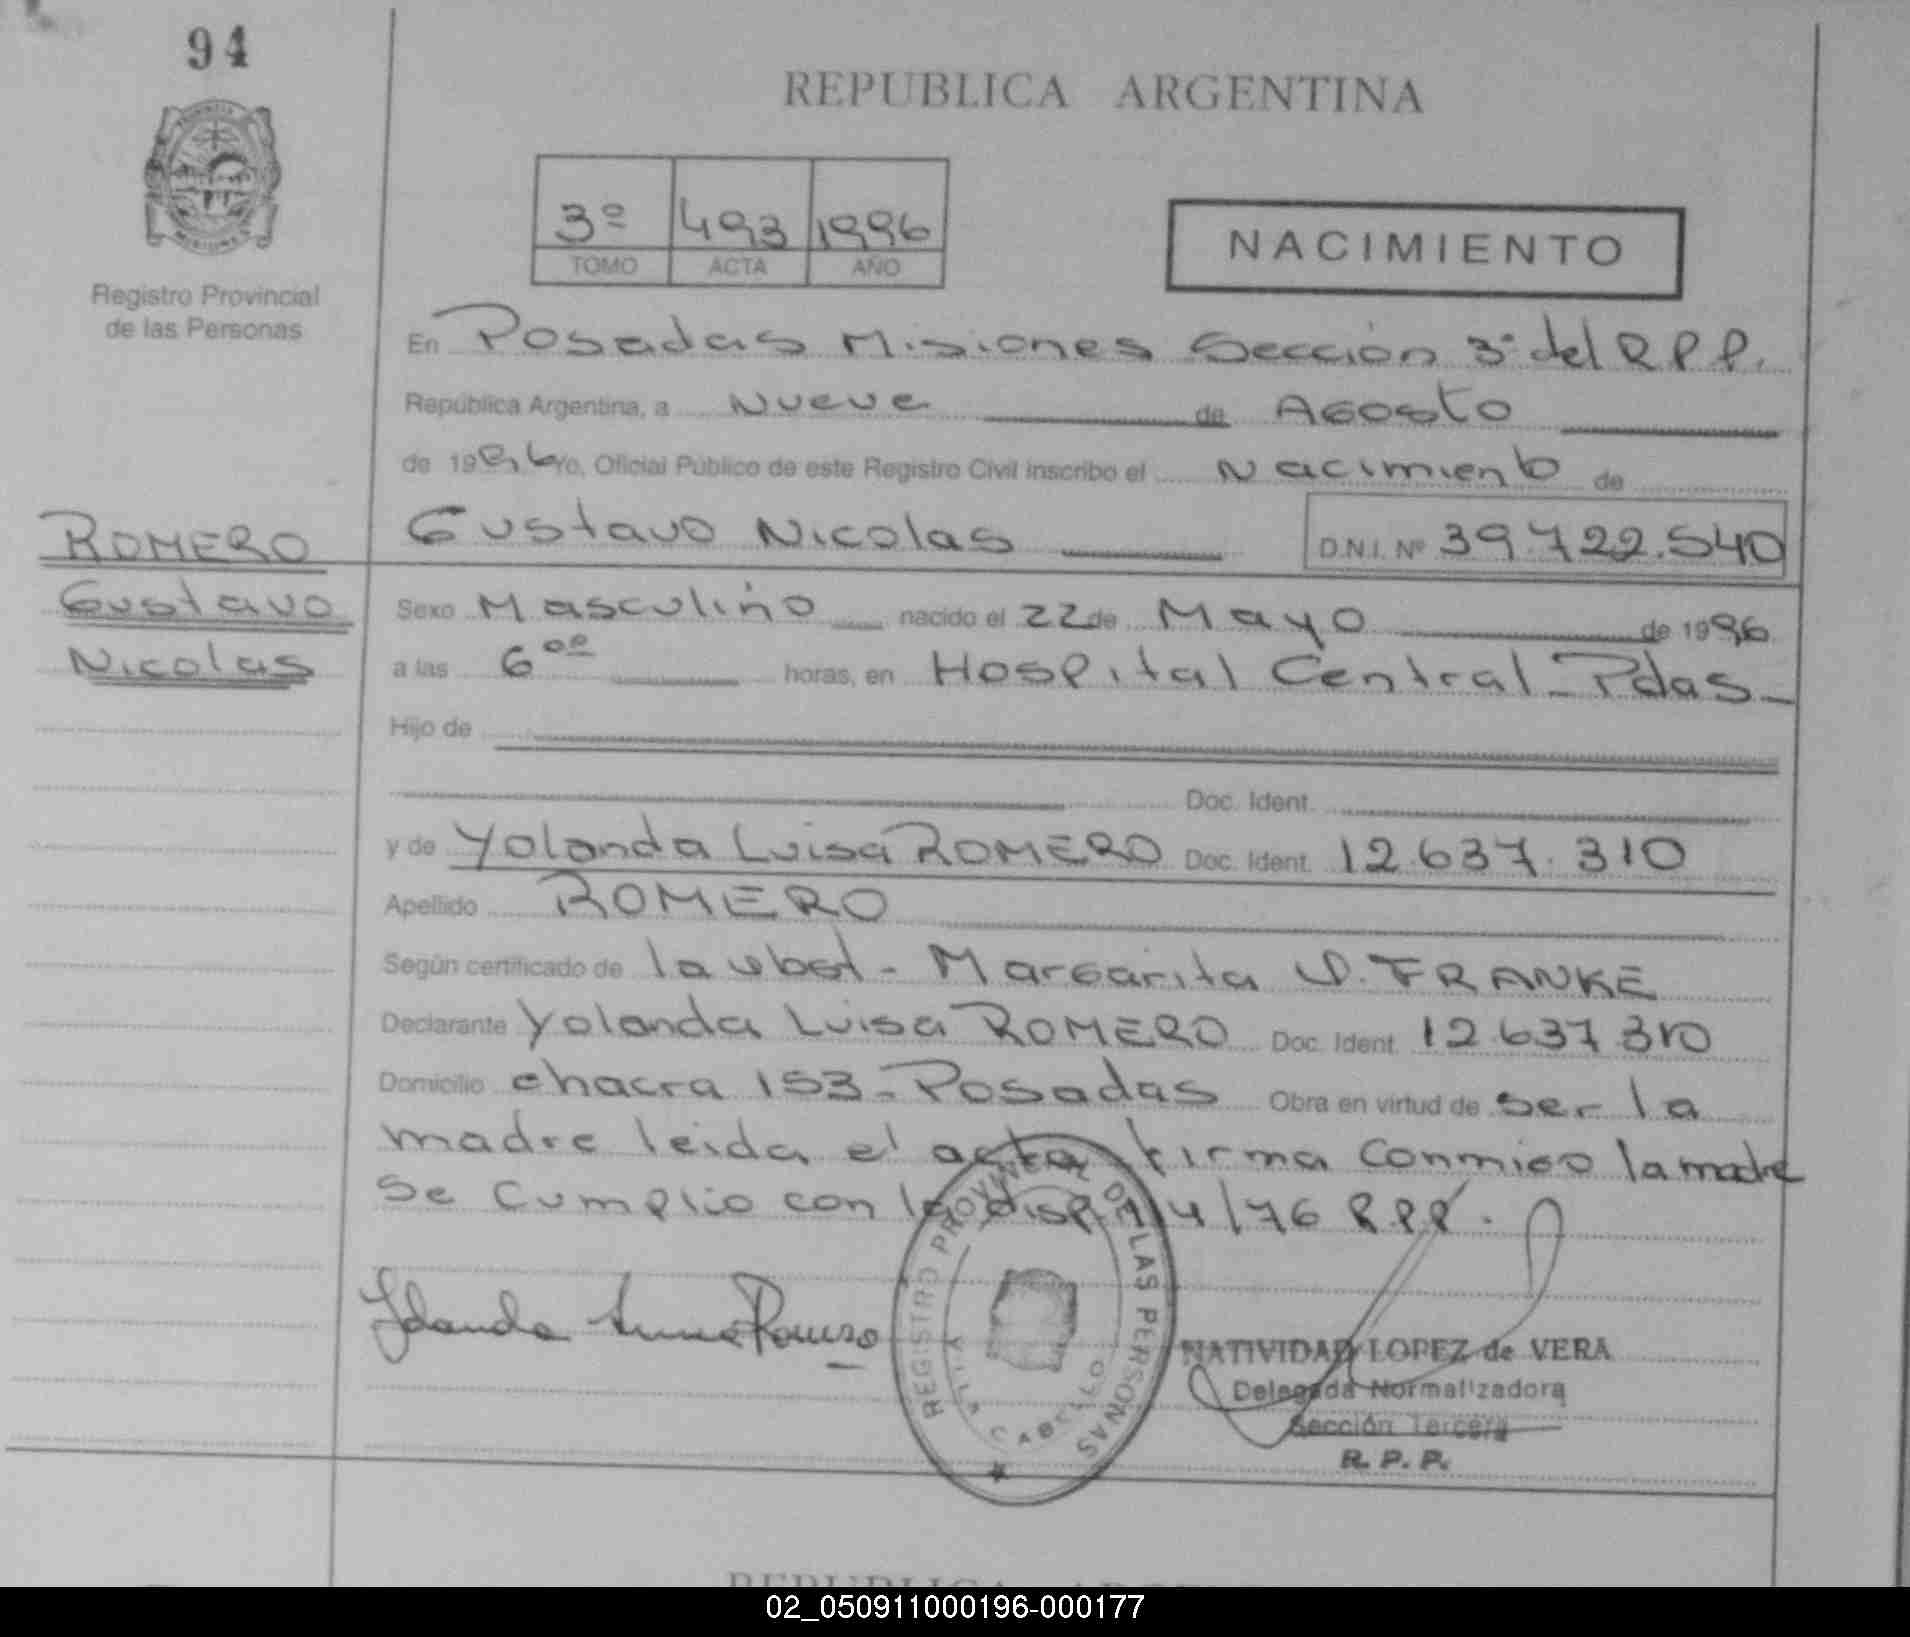 94
REPUBLICA ARGENTINA
3º 493 1996
TOMO ACTA AÑO
NACIMIENTO
Registro Provincial
de las Personas
En Posadas Misiones Sección 3º del R.P.P.
República Argentina, a Nueve de Agosto
de 1996 Yo, Oficial Público de este Registro Civil inscribo el Nacimiento de
Gustavo Nicolas D.N.I. Nº 39.722.540
ROMERO
Gustavo
Nicolas
Sexo Masculino nacido el 22 de Mayo de 1996
a las 6 ºº horas, en Hospital Central - Pdas -
Hijo de
Doc. Ident.
y de Yolanda Luisa ROMERO Doc. Ident. 12.637.310
Apellido ROMERO
Según certificado de la obst - Margarita FRANKE
Declarante Yolanda Luisa ROMERO Doc. Ident. 12.637.310
Domicilio chacra 153 - Posadas Obra en virtud de ser la
madre leida el acta firma conmigo la madre
se cumplio con la disp. 4/76 R.P.P.
REGISTRO PROVINCIAL DE LAS PERSONAS
VILLA CABELLO
NATIVIDAD LOPEZ de VERA
Delegada Normalizadora
Sección Tercera
R. P. P.
02_050911000196-000177